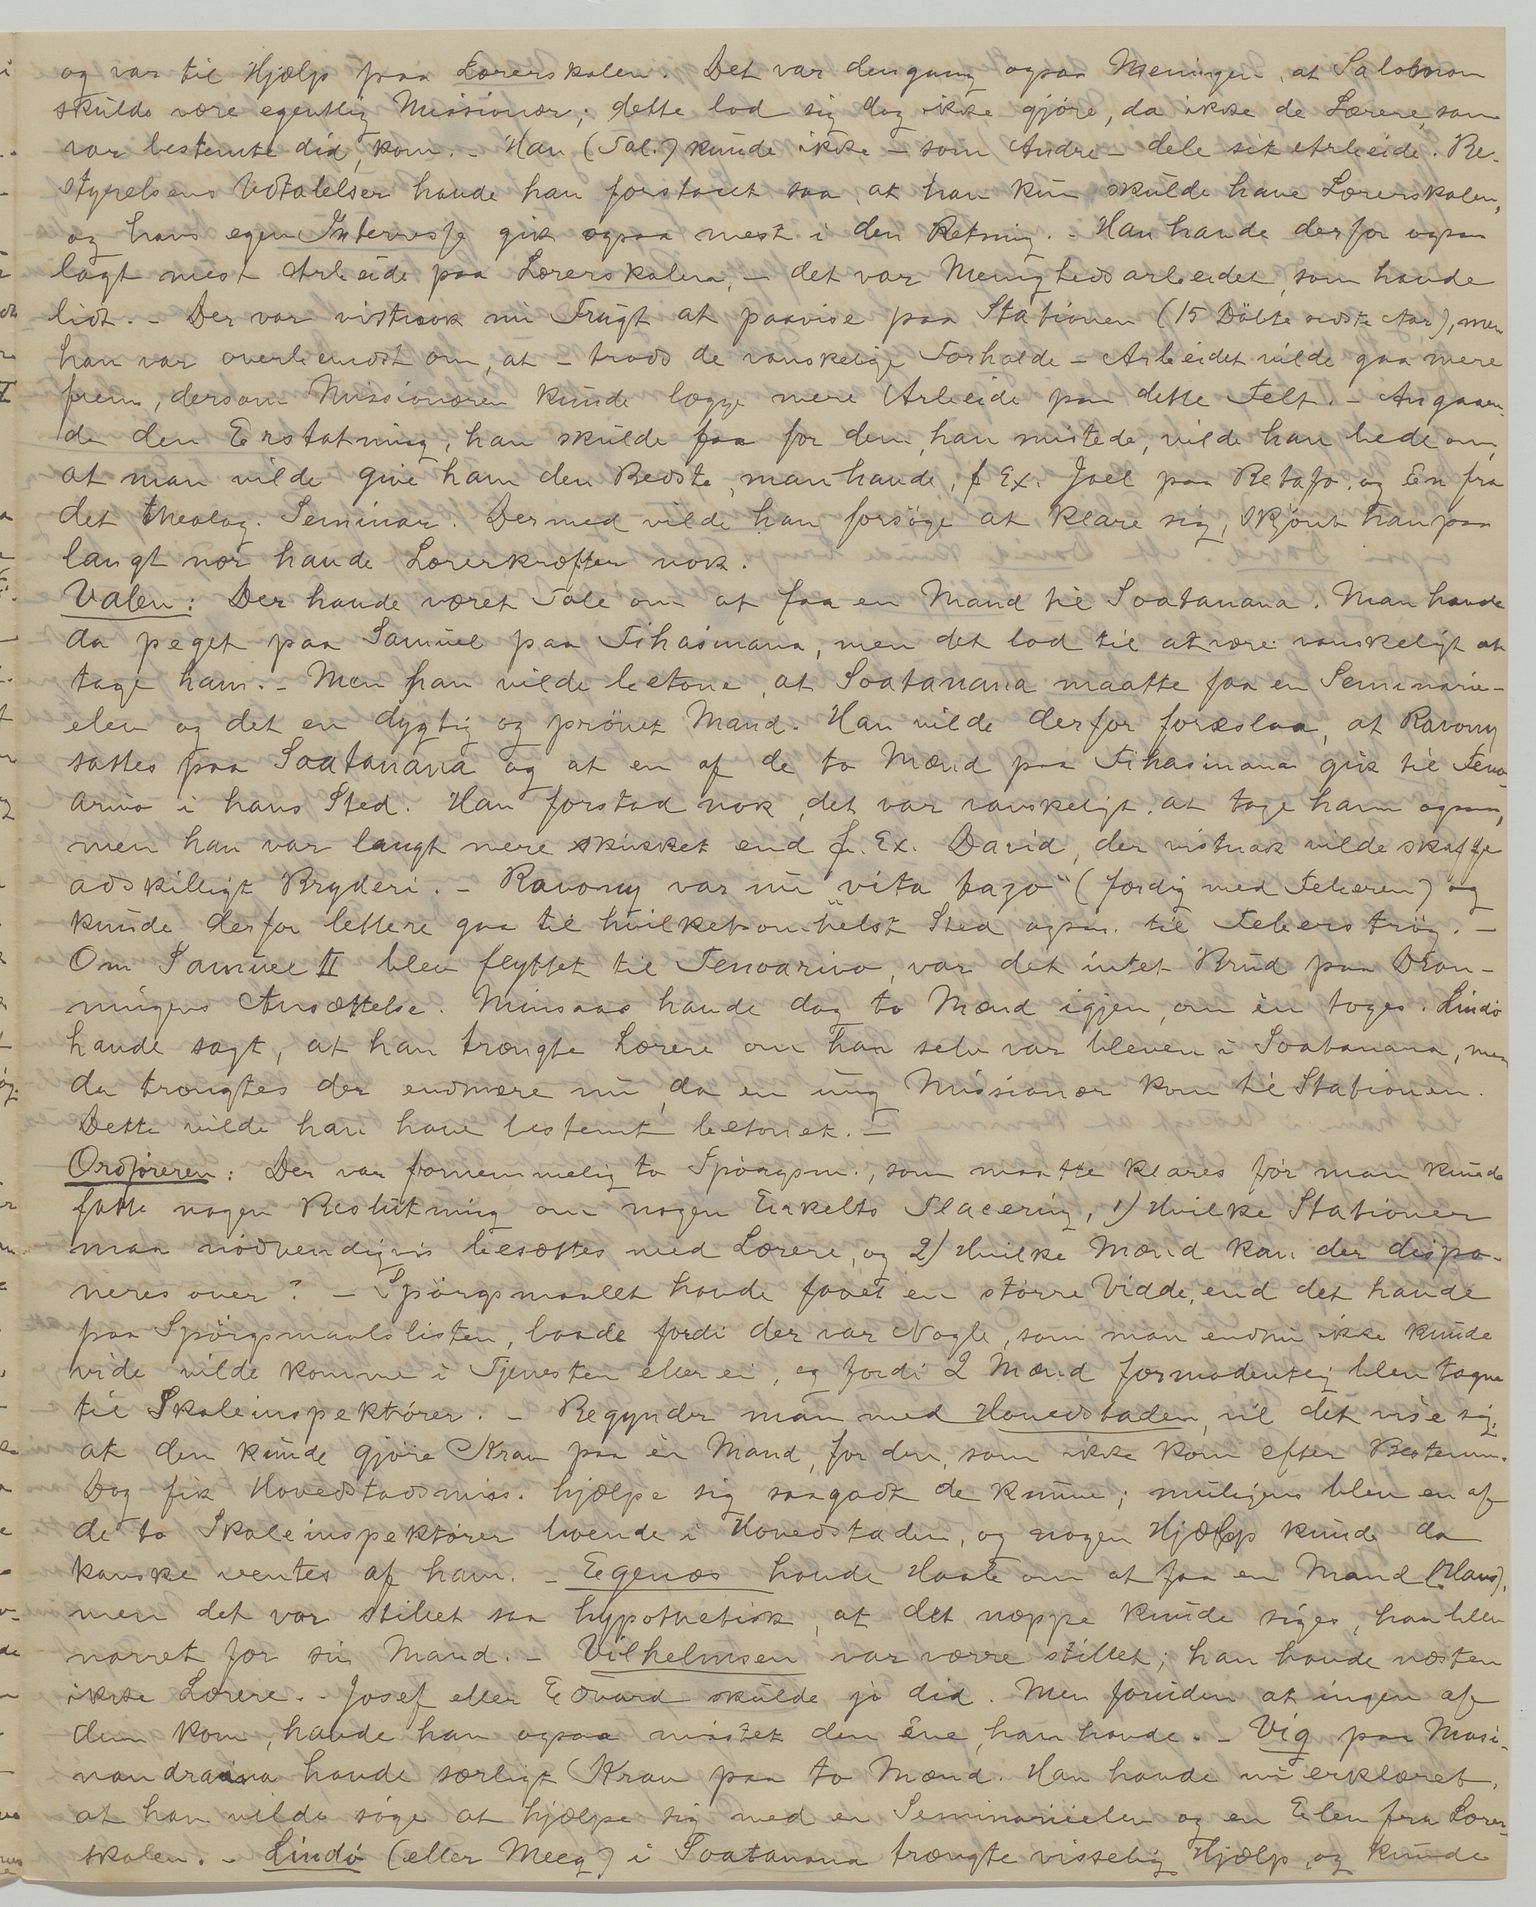 og var til Hjælp paa Lærerskolen. Det var dengang ogsaa Meningen, at Salomon
skulde være egentlig Missionær; dette lod sig dog ikke gjøre, da ikke de Lærere, som
var bestemte did, kom. – Han (Sal.) kunde ikke – som Andre – dele sit Arbeide. Be-
styrelsens Udtalelser havde han forstaaet saa, at han kun skulde have Lærerskolen,
og hans egen Interesse gik ogsaa mest i den Retning. – Han havde derfor ogsaa
lagt mest Arbeide paa Lærerskolen, – det var Menighedsarbeidet, som havde
lidt. – Der var vistnok nu Frugt at paavise paa Stationen (15 Döbte sidste Aar), men
han var overbevist om, at – trods de vanskelige Forholde – Arbeidet vilde gaa mere
frem, dersom Missionæren kunde lægge mere Arbeide paa dette Felt. – Angaaen-
de den Erstatning, han skulde faa for dem, han mistede, vilde han bede om,
at man vilde give ham den Bedste, man havde, f. Ex. Joel paa Betafo og En fra
det theolog. Seminar. Dermed vilde han forsøge at klare sig, skjönt han paa
langt nær havde Lærerkræfter nok.
Valen: Der havde været Tale om at faa en Mand til Soatanana. Man havde
da peget paa Samuel paa Fihasinana, men det lod til at være vanskeligt at
tage ham. – Men han vilde betone, at Soatanana maatte faa en Seminarie-
elev og det en dygtig og prövet Mand. Han vilde derfor foreslaa, at Ravony
sattes paa Soatanana og at en af de to Mænd paa Fihasinana gik til Feno-
arivo i hans Sted. Han forstod nok, det var vanskeligt at tage ham ogsaa,
men han var langt mere skikket end f. Ex. David, der vistnok vilde skaffe
adskilligt Bryderi. – Ravony var nu "vita tazo" (færdig med Feberen) og
kunde derfor lettere gaa til hvilketsomhelst Sted ogsaa til Feberströg. –
Om Samuel II blev flyttet til Fenoarivo, var det intet Brud paa Dron-
ningens Ansættelse. Minsaas havde dog to Mænd igjen, om én toges. Lindö
havde sagt, at han trængte Lærere om han selv var bleven i Soatanana, men
da trængtes der endmere nu, da en ung Missionær kom til Stationen.
Dette vilde han have bestemt betonet. –
Ordføreren: Der var fornemmelig to Spörgsm., som maatte klares för man kunde
fatte nogen Beslutning om nogen Enkelts Placering, 1) Hvilke Stationer
maa nödvendigvis besættes med Lærere, og 2) Hvilke Mænd kan der dispo-
neres over? – Spörgsmaalet havde faaet en större Vidde, end det havde
paa Spörgsmaalslisten, baade fordi der var Nogle, som man endnu ikke kunde
vide vilde komme i Tjenesten eller ei, og fordi 2 Mænd formodentlig blev tagne
til Skoleinspektörer. – Begynder man med Hovedstaden, vil det vise sig,
at den kunde gjöre Krav paa én Mand, for den, som ikke kom efter Bestemm.
Dog fik Hovedstadsmiss. hjælpe sig saagodt de kunne; muligens blev en af
de to Skoleinspektörer boende i Hovedstaden, og nogen Hjælp kunde da
kanske ventes af ham. – Egenæs havde Haab om at faa en Mand (Hans),
men det var stillet saa hypothetisk, at det neppe kunde siges, han blev
narret for sin Mand. – Vilhelmsen var værre stillet; han havde næsten
ikke Lærere. – Josef eller Edvard skulde jo did. Men foruden at ingen af
dem kom, havde han ogsaa mistet den ene, han havde. – Vig paa Masi-
nandraina havde særligt Krav paa to Mænd. Han havde nu erklæret,
at han vilde söge at hjælpe sig med en Seminarieelev og en Elev fra Lærer-
skolen. – Lindö (eller Meeg) i Soatanana trængte visselig Hjælp, og kunde